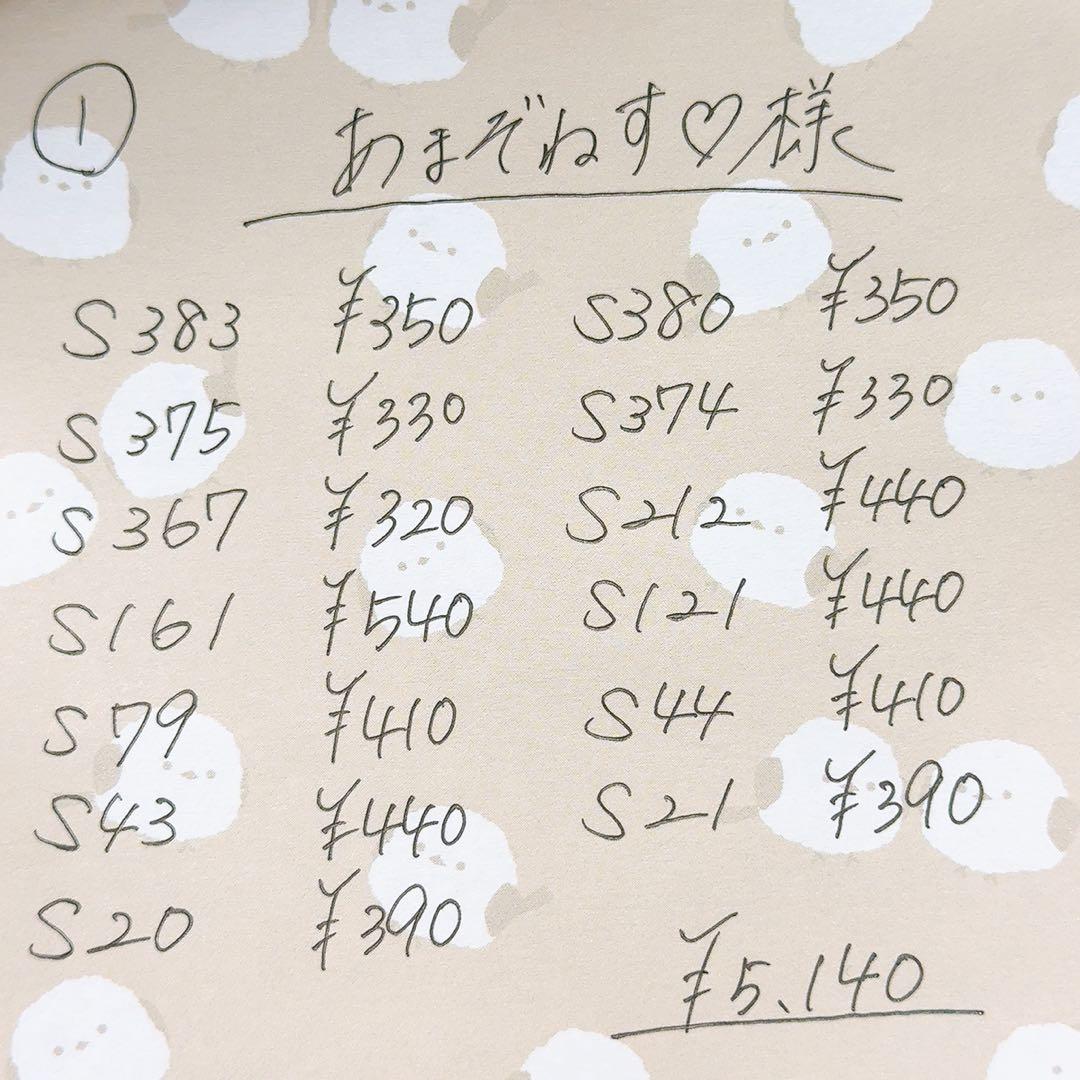 ①
あまぞねす♡様
S383 ¥350 S380 ¥350
S375 ¥330 S374 ¥330
S367 ¥320 S212 ¥440
S161 ¥540 S121 ¥440
S79 ¥410 S44 ¥410
S43 ¥440 S21 ¥390
S20 ¥390
¥5、140